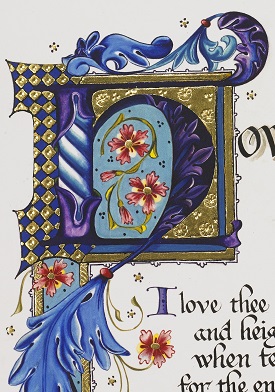 How
I love thee
and heig
when fe
for the en